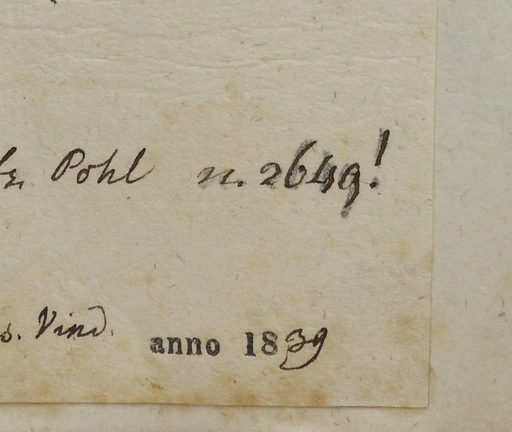 Pohl n. 2649!
s. Vind. anno 1839